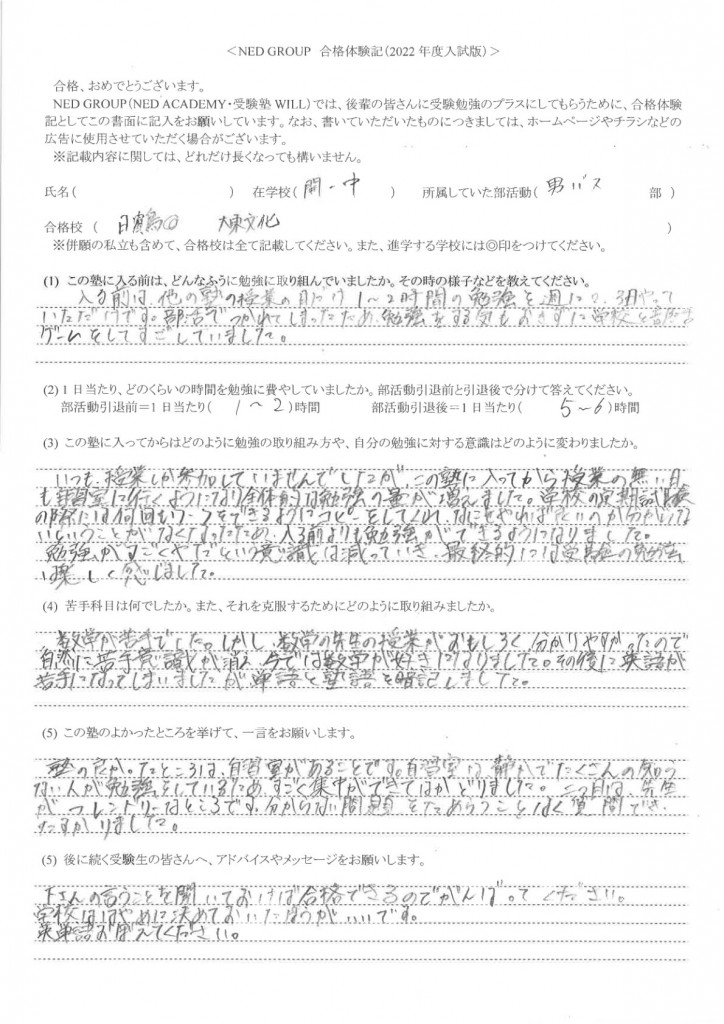 ＜NED GROUP 合格体験記（2022 年度入試版）＞
合格、おめでとうございます。
NED GROUP（NED ACADEMY・受験塾 WILL）では、後輩の皆さんに受験勉強のプラスにしてもらうために、合格体験
記としてこの書面に記入をお願いしています。なお、書いていただいたものにつきましては、ホームページやチラシなどの
広告に使用させていただく場合がございます。
※記載内容に関しては、どれだけ長くなっても構いません。
氏名（ ） 在学校（ 開一中 ） 所属していた部活動（ 男バス 部 ）
合格校 （ 日 鶴◎ 大東文化 ）
※併願の私立も含めて、合格校は全て記載してください。また、進学する学校には◎印をつけてください。
(1) この塾に入る前は、どんなふうに勉強に取り組んでいましたか。その時の様子などを教えてください。
入る前は、他の塾の授業の日だけ 1〜2時間の勉強を週に2、3日やって
いただけです。部活でつかれてしまったため、勉強をする気もおきずに学校と部活と
ゲームをしてすごしていました。
(2) 1 日当たり、どのくらいの時間を勉強に費やしていましたか。部活動引退前と引退後で分けて答えてください。
部活動引退前＝1 日当たり（ 1〜2 ）時間 部活動引退後＝1 日当たり（ 5〜6 ）時間
(3) この塾に入ってからはどのように勉強の取り組み方や、自分の勉強に対する意識はどのように変わりましたか。
いつも、授業しか参加していませんでしたが、この塾に入ってから授業の無い日
も自習室に行くようになり全体的な勉強の量が増えました。学校の定期試験
の際には何回もワークをできるようにコピーをしてくれ、なにをやれば良いのか分からな
いということがなくなったため、入る前よりも勉強ができるようになりました。
勉強がすごくやだという意識は減っていき、最終的には受験の勉強
は楽しく感じました。
(4) 苦手科目は何でしたか。また、それを克服するためにどのように取り組みましたか。
数学が苦手でした。しかし、数学の先生の授業がおもしろく分かりやすかったので
自然に苦手意識が消え、今では数学が好きになりました。その後に英語が
苦手になってしまいましたが単語と熟語を暗記しました。
(5) この塾のよかったところを挙げて、一言をお願いします。
塾の良かったところは、自習室があることです。自習室は、静かでたくさんの知ら
ない人が勉強をしているため、すごく集中ができてはかどりました。二つ目は、先生
がフレンドリーなところです。分からない問題をためらうことなく質問でき、
たすかりました。
(5) 後に続く受験生の皆さんへ、アドバイスやメッセージをお願いします。
さんの言うことを聞いておけば合格できるのでがんばってください。
学校ははやめに決めておいたほうがいいです。
英単語おぼえてください。